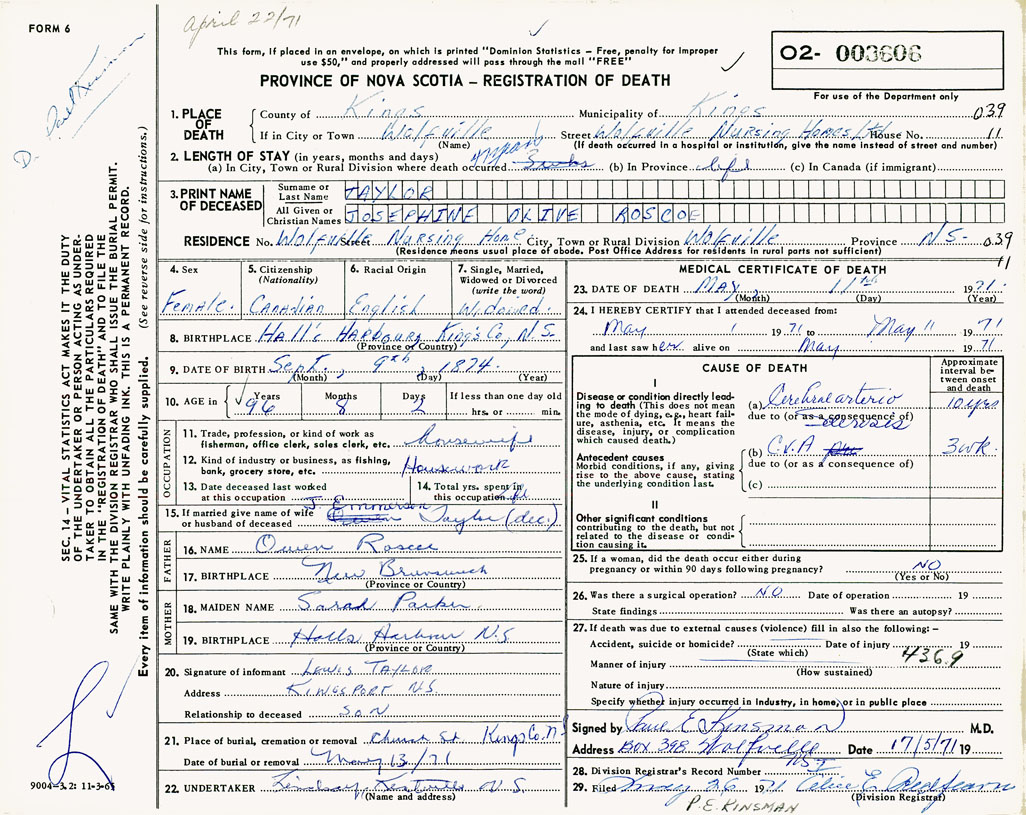 April 22/71
FORM 6
This form, if placed in an envelope, on which is printed "Dominion Statistics – Free, penalty for improper
use $50," and properly addressed will pass through the mail "FREE"
PROVINCE OF NOVA SCOTIA – REGISTRATION OF DEATH
O2- 003606
For use of the Department only
Paul Kinsman
D.
SEC. 14 – VITAL STATISTICS ACT MAKES IT THE DUTY
OF THE UNDERTAKER OR PERSON ACTING AS UNDER-
TAKER TO OBTAIN ALL THE PARTICULARS REQUIRED
IN THE "REGISTRATION OF DEATH" AND TO FILE THE
SAME WITH THE DIVISION REGISTRAR WHO SHALL ISSUE THE BURIAL PERMIT.
WRITE PLAINLY WITH UNFADING INK. THIS IS A PERMANENT RECORD.
Every item of information should be carefully supplied. (See reverse side for instructions.)
1. PLACE OF DEATH County of Kings Municipality of Kings 039
If in City or Town Wolfville Street Wolfville Nursing Homes Ltd House No. 11
(Name) (If death occurred in a hospital or institution, give the name instead of street and number)
2. LENGTH OF STAY (in years, months and days)
(a) In City, Town or Rural Division where death occurred (b) In Province life (c) In Canada (if immigrant)
3. PRINT NAME OF DECEASED Surname or Last Name TAYLOR
All Given or Christian Names JOSEPHINE OLIVE ROSCOE
RESIDENCE No. Wolfville Street Nursing Home City, Town or Rural Division Wolfville Province N.S. 039
(Residence means usual place of abode. Post Office Address for residents in rural parts not sufficient) 11
4. Sex Female. 5. Citizenship (Nationality) Canadian 6. Racial Origin English 7. Single, Married, Widowed or Divorced (write the word) Widowed.
8. BIRTHPLACE Hall's Harbour, King's Co, N.S.
(Province or Country)
9. DATE OF BIRTH Sept., 9th, 1874.
(Month) (Day) (Year)
10. AGE in Years 96 Months 8 Days 2 If less than one day old hrs. or min.
OCCUPATION
11. Trade, profession, or kind of work as
fisherman, office clerk, sales clerk, etc. Housewife
12. Kind of industry or business, as fishing,
bank, grocery store, etc. Housework
13. Date deceased last worked
at this occupation
14. Total yrs. spent in
this occupation life
15. If married give name of wife
or husband of deceased J. Emmerson Taylor (dec.)
FATHER
16. NAME Owen Roscoe
17. BIRTHPLACE New Brunswick
(Province or Country)
MOTHER
18. MAIDEN NAME Sarah Parker
19. BIRTHPLACE Halls Harbour N.S
(Province or Country)
20. Signature of informant LEWIS TAYLOR
Address KINGSPORT N.S.
Relationship to deceased SON
21. Place of burial, cremation or removal Church St. Kings Co. N.S
Date of burial or removal May 13/71
22. UNDERTAKER Lindsay, Kentville N.S.
(Name and address)
9004-3.2: 11-3-65
MEDICAL CERTIFICATE OF DEATH
23. DATE OF DEATH MAY, 11th 1971.
(Month) (Day) (Year)
24. I HEREBY CERTIFY that I attended deceased from:
May 1 1971 to May 11 1971
and last saw her alive on May 1971
CAUSE OF DEATH
Approximate interval between onset and death
I
Disease or condition directly lead-
ing to death (This does not
mean the mode of dying, e.g., heart fail-
ure, asthenia, etc. It means the
disease, injury, or complication
which caused death.)
(a) Cerebral arterio 10 yrs
due to (or as a consequence of) sclerosis
Antecedent causes
Morbid conditions, if any, giving
rise to the above cause, stating
the underlying condition last.
(b) C.V.A. 3 wk.
due to (or as a consequence of)
(c)
II
Other significant conditions
contributing to the death, but not
related to the disease or condi-
tion causing it.
25. If a woman, did the death occur either during
pregnancy or within 90 days following pregnancy? NO
(Yes or No)
26. Was there a surgical operation? NO Date of operation 19
State findings Was there an autopsy?
27. If death was due to external causes (violence) fill in also the following: –
Accident, suicide or homicide? Date of injury 19
(State which) 436.9
Manner of injury
(How sustained)
Nature of injury
Specify whether injury occurred in industry, in home, or in public place
Signed by Paul E Kinsman M.D.
Address Box 398 Wolfville NS Date 17/5/71 19
28. Division Registrar's Record Number
29. Filed May 26 1971 Alice E.
(Division Registrar)
P.E. KINSMAN